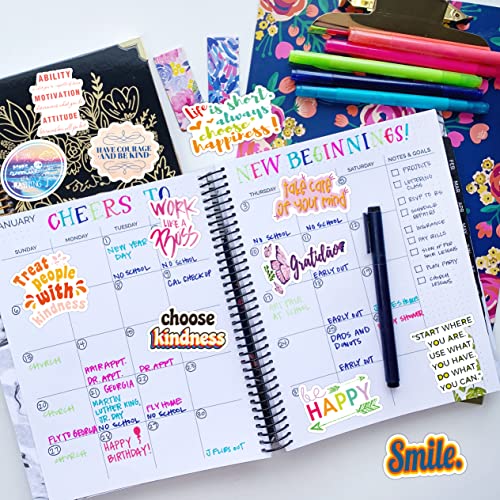 ABILITY
MOTIVATION
ATTITUDE
HAVE COURAGE
AND BE KIND
Life is short,
always
choose
happiness!
JANUARY
CHEERS TO
NEW BEGINNINGS!
SUNDAY
MONDAY
THURSDAY
SATURDAY
NOTES & GOALS
PROJECTS
LETTERING
CLASS
RSVP TO
SCHEDULE
REPAIRS
INSURANCE
PAY BILLS
SIGN UP FOR
PLAN PARTY
WORK
LIKE A
Boss
take care
of your mind
NEW YEAR
DAY
NO SCHOOL
NO SCHOOL
CAL CHECKUP
NO SCHOOL
NO SCHOOL
Gratitude
Treat
people
with
kindness
choose
kindness
EARLY OUT
EARLY OUT
DADS AND
DONUTS
EARLY OUT
CHURCH
HAIR APPT.
DR. APPT.
DR. APPT
GEORGIA
CHURCH
MARTIN
LUTHER KING
JR. DAY
NO SCHOOL
FLY HOME
NO SCHOOL
FLY TO GEORGIA
CHURCH
HAPPY
BIRTHDAY!
J FLIPS OUT
be
HAPPY
"START WHERE
YOU ARE.
USE WHAT
YOU HAVE.
DO WHAT
YOU CAN."
Smile.